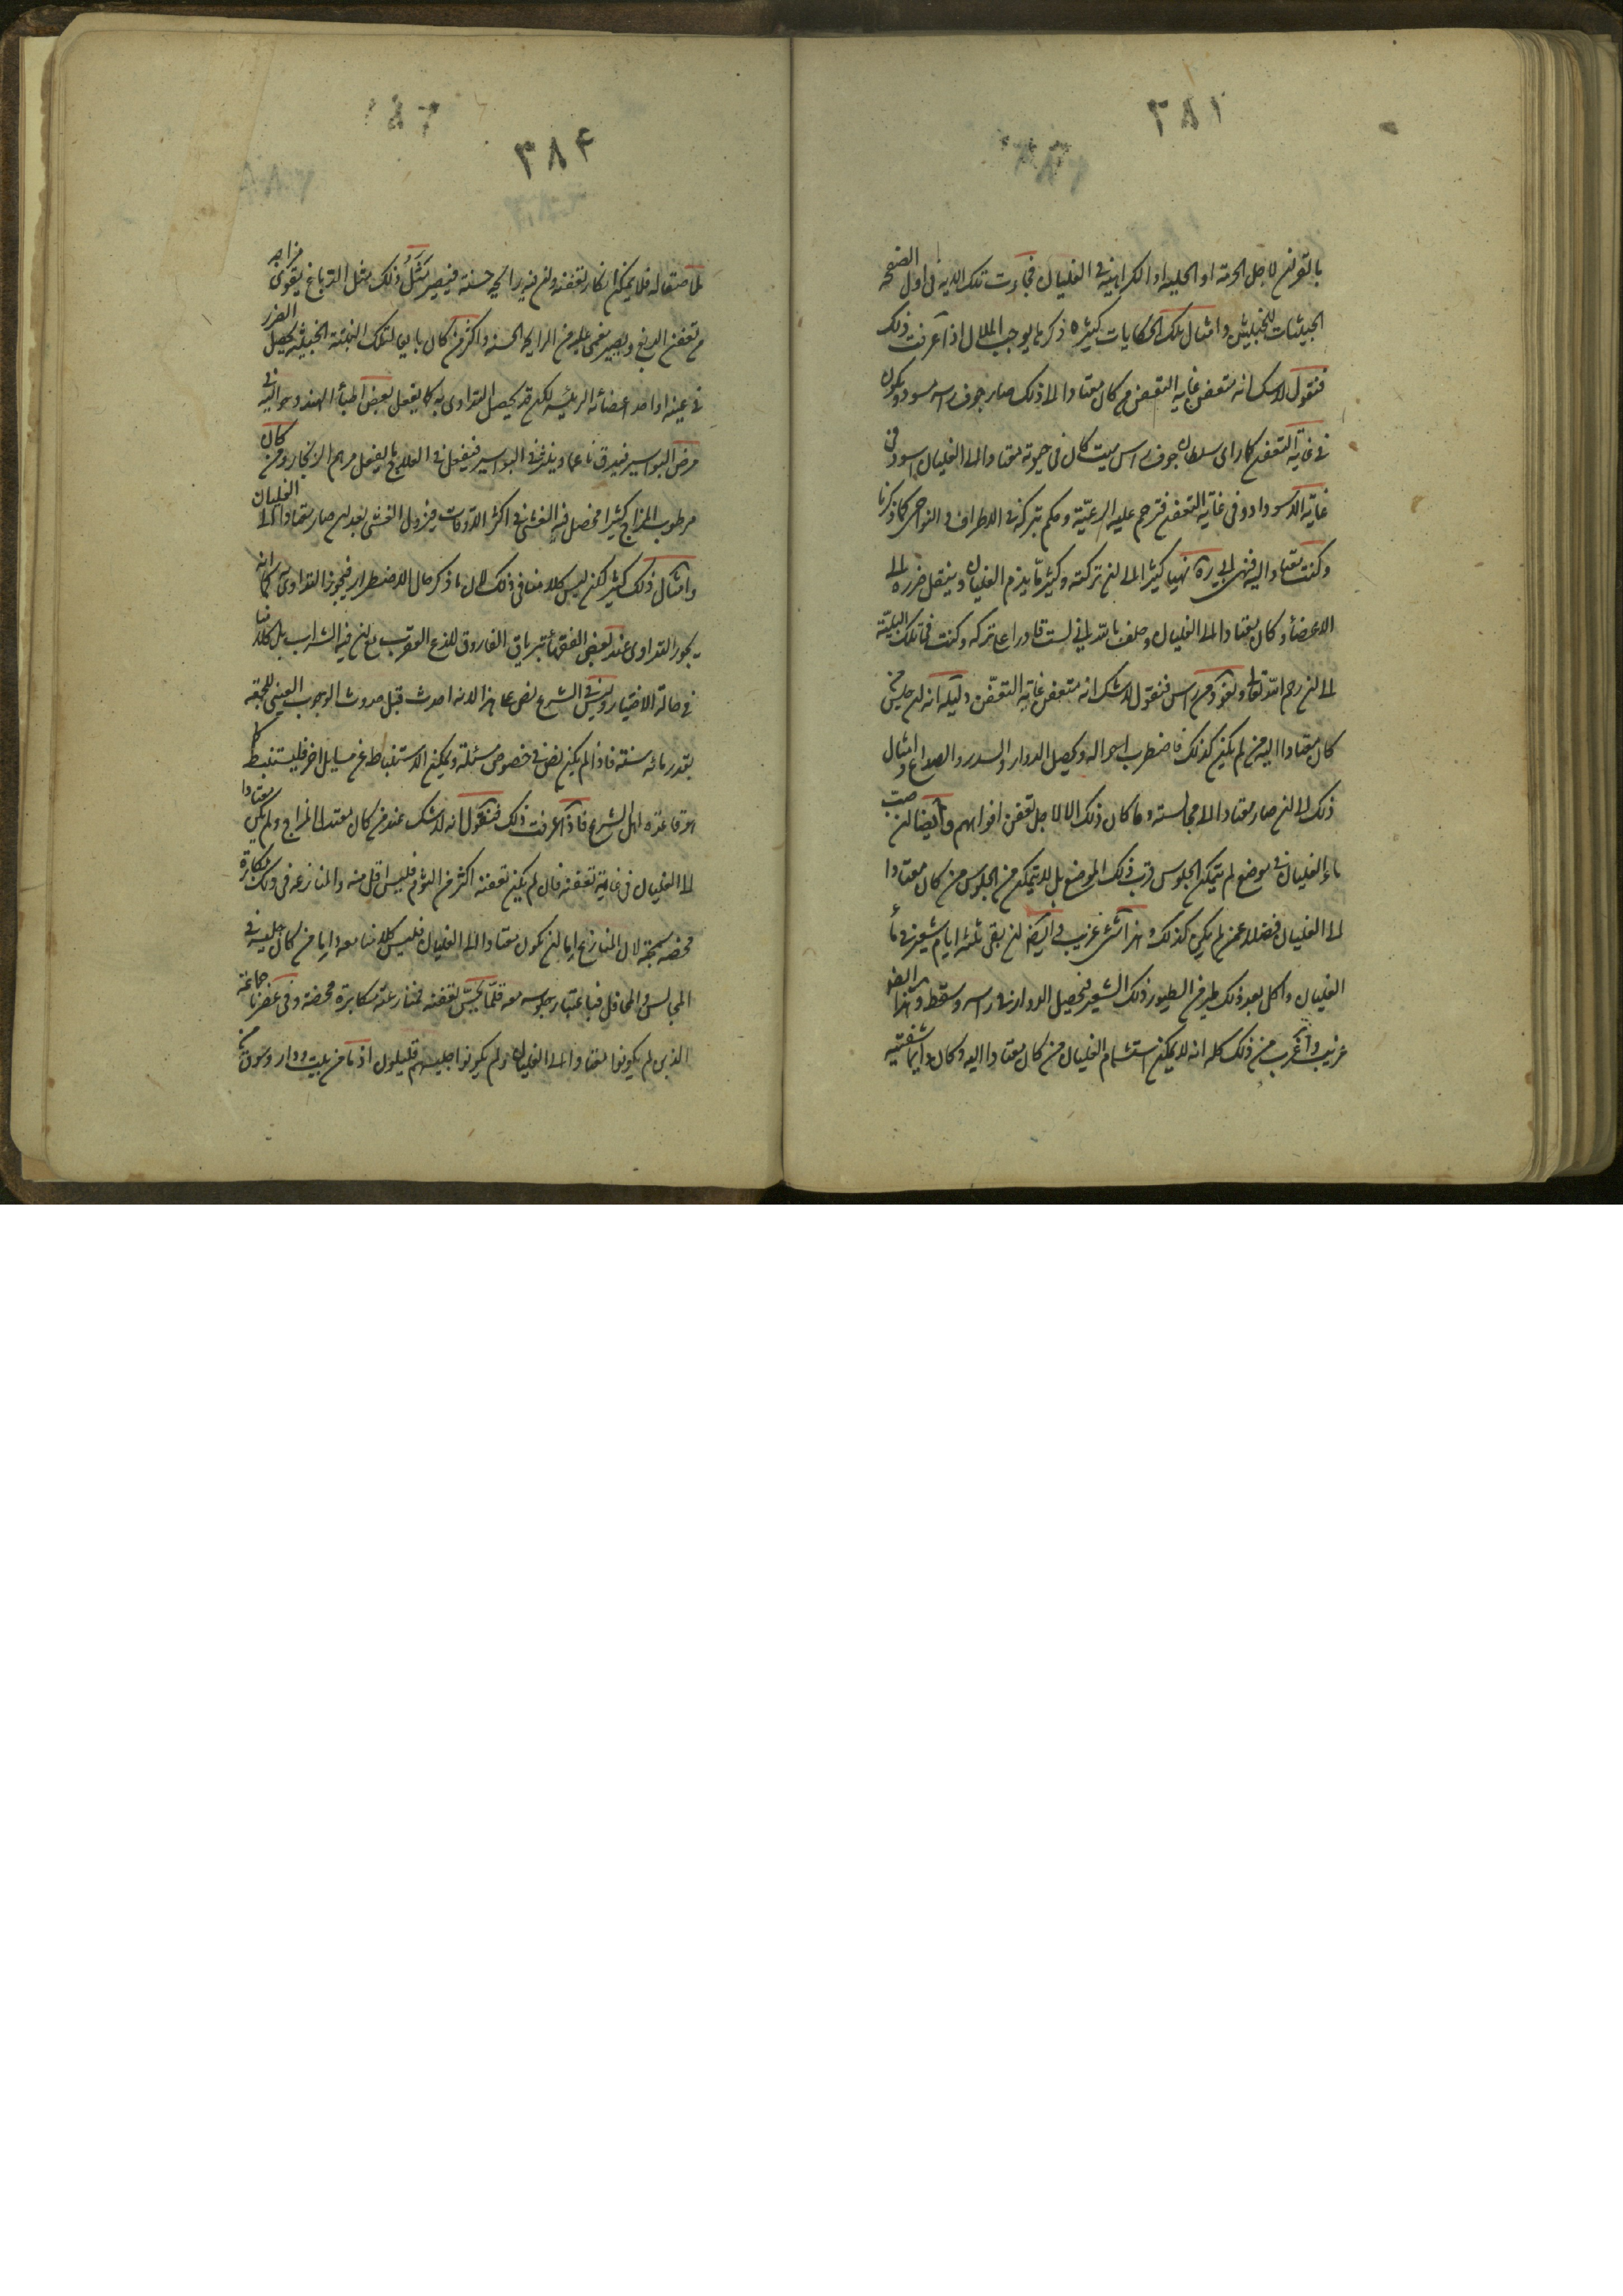 ٣٨١
بالقرآن لاجل الحرمة او الحلية او الكراهية في الغليان فجاءت تلك الاية في اول الصفحة
الخبيثات للخبيثين وامثال تلك الحكايات كثيرة ذكرها يوجب الملال اذا عرفت ذلك
فنقول لا شك انه متعفن غاية التعفن من كان معتادا الى ذلك صار جوف راسه مسودا ويكون
في غاية التعفن كما راى سلطان جوف راس ميت كان في حيوته معتادا الى الغليان اسود في
غاية الاسوداد وفي غاية التعفن فترحم عليه الرعية وحكم بتركه في الاطراف والنواحي كما ذكرنا
وكنت معتادا اليه فنهى نهيا كثيرا الى ان تركته وكثيرا ما يذم الغليان وينقل ضرره الى
الاعضاء وكان معتادا الى الغليان وحلف بالله اني لست قادرا على تركه وكنت في تلك البلية
الى ان رحم الله تعالى فنقول لا شك انه متعفن غاية التعفن دليله انه ان جلس من
كان معتادا اليه من لم يكن كذلك فاضطرب احواله ويحصل الدوار والسدر والصداع وامثال
ذلك الى ان صار معتادا الى مجالسته وما كان ذلك الا لاجل تعفن افواههم وايضا ان صب
ماء الغليان في موضع لم يتمكن الجلوس قرب ذلك الموضع بل لا يتمكن من الجلوس من كان معتادا
الى الغليان فضلا عمن لم يكن كذلك وهذا شيء غريب وايضا ان بقى ثلثة ايام شعير في ماء
الغليان واكل بعد ذلك طير من الطيور ذلك الشعير فحصل الدوار في راسه وسقط وهذا ايضا
غريب واغرب من ذلك كله انه لا يمكن استشمام الغليان من كان معتادا اليه وكان دايما شفتيه
٣٨٤
ملاصقا له فلا يمكن انكار تعفنه وان فيه رايحة حسنة فيصير مثل ذلك مثل الدباغ يقوى مزاجه
من تعفن الدبغ ويصير مغمى عليه من الرايحة الحسنة واكثر من كان باين لتلك النبتة الخبيثة يحصل الضرر
في عينه او احد اعضائه الرئيسة لكن قد يحصل التداوى به كما يفعل بعض اطباء الهند وحواليه في
مرض البواسير فيدق ناعما ويذر في البواسير فيفعل في العلاج ما يفعل مرهم الزنجار ومن كان
مرطوب المزاج كثيرا فحصل فيه الغشى في اكثر الاوقات فيزول الغشى بعد ان صار معتادا الى الغليان
وامثال ذلك كثير لكن ليس كلامنا في ذلك لان ما ذكر حال الاضطرار فيجوز التداوى كما انه
يجوز التداوى عند بعض الفقهاء بترياق الفاروق للدغ العقرب مع ان فيه الشراب بل كلامنا
في حالة الاختيار وليس في الشرع نص على هذا لانه احدث قبل حدوث الوجوب العينى للجمعة
بقدر مائه سنة فاذا لم يكن نص في خصوص مسئلة ويمكن الاستنباط من مسايل اخر فليستنبط كما
هو قاعدة اهل الشرع فاذا عرفت ذلك فنقول انه لا شك عند من كان معتدل المزاج ولم يكن معتادا
الى الغليان في غاية تعفنه فان لم يكن تعفنه اكثر من الثوم فليس اقل منه والمنازعة في ذلك مكابرة
محضة سمجة لان المنازع اما ان يكون معتادا الى الغليان فليس كلامنا معه واما من كان جليسه في
المجالس والمحافل فباعتبار جلوسه معه قلما يحس تعفنه فمنازعته مكابرة محضة وفي عصرنا جماعة
الذين لم يكونوا معتادا الى الغليان ولم يكونوا جليسهم قليلون اذ ما من بيت ودار وسوق